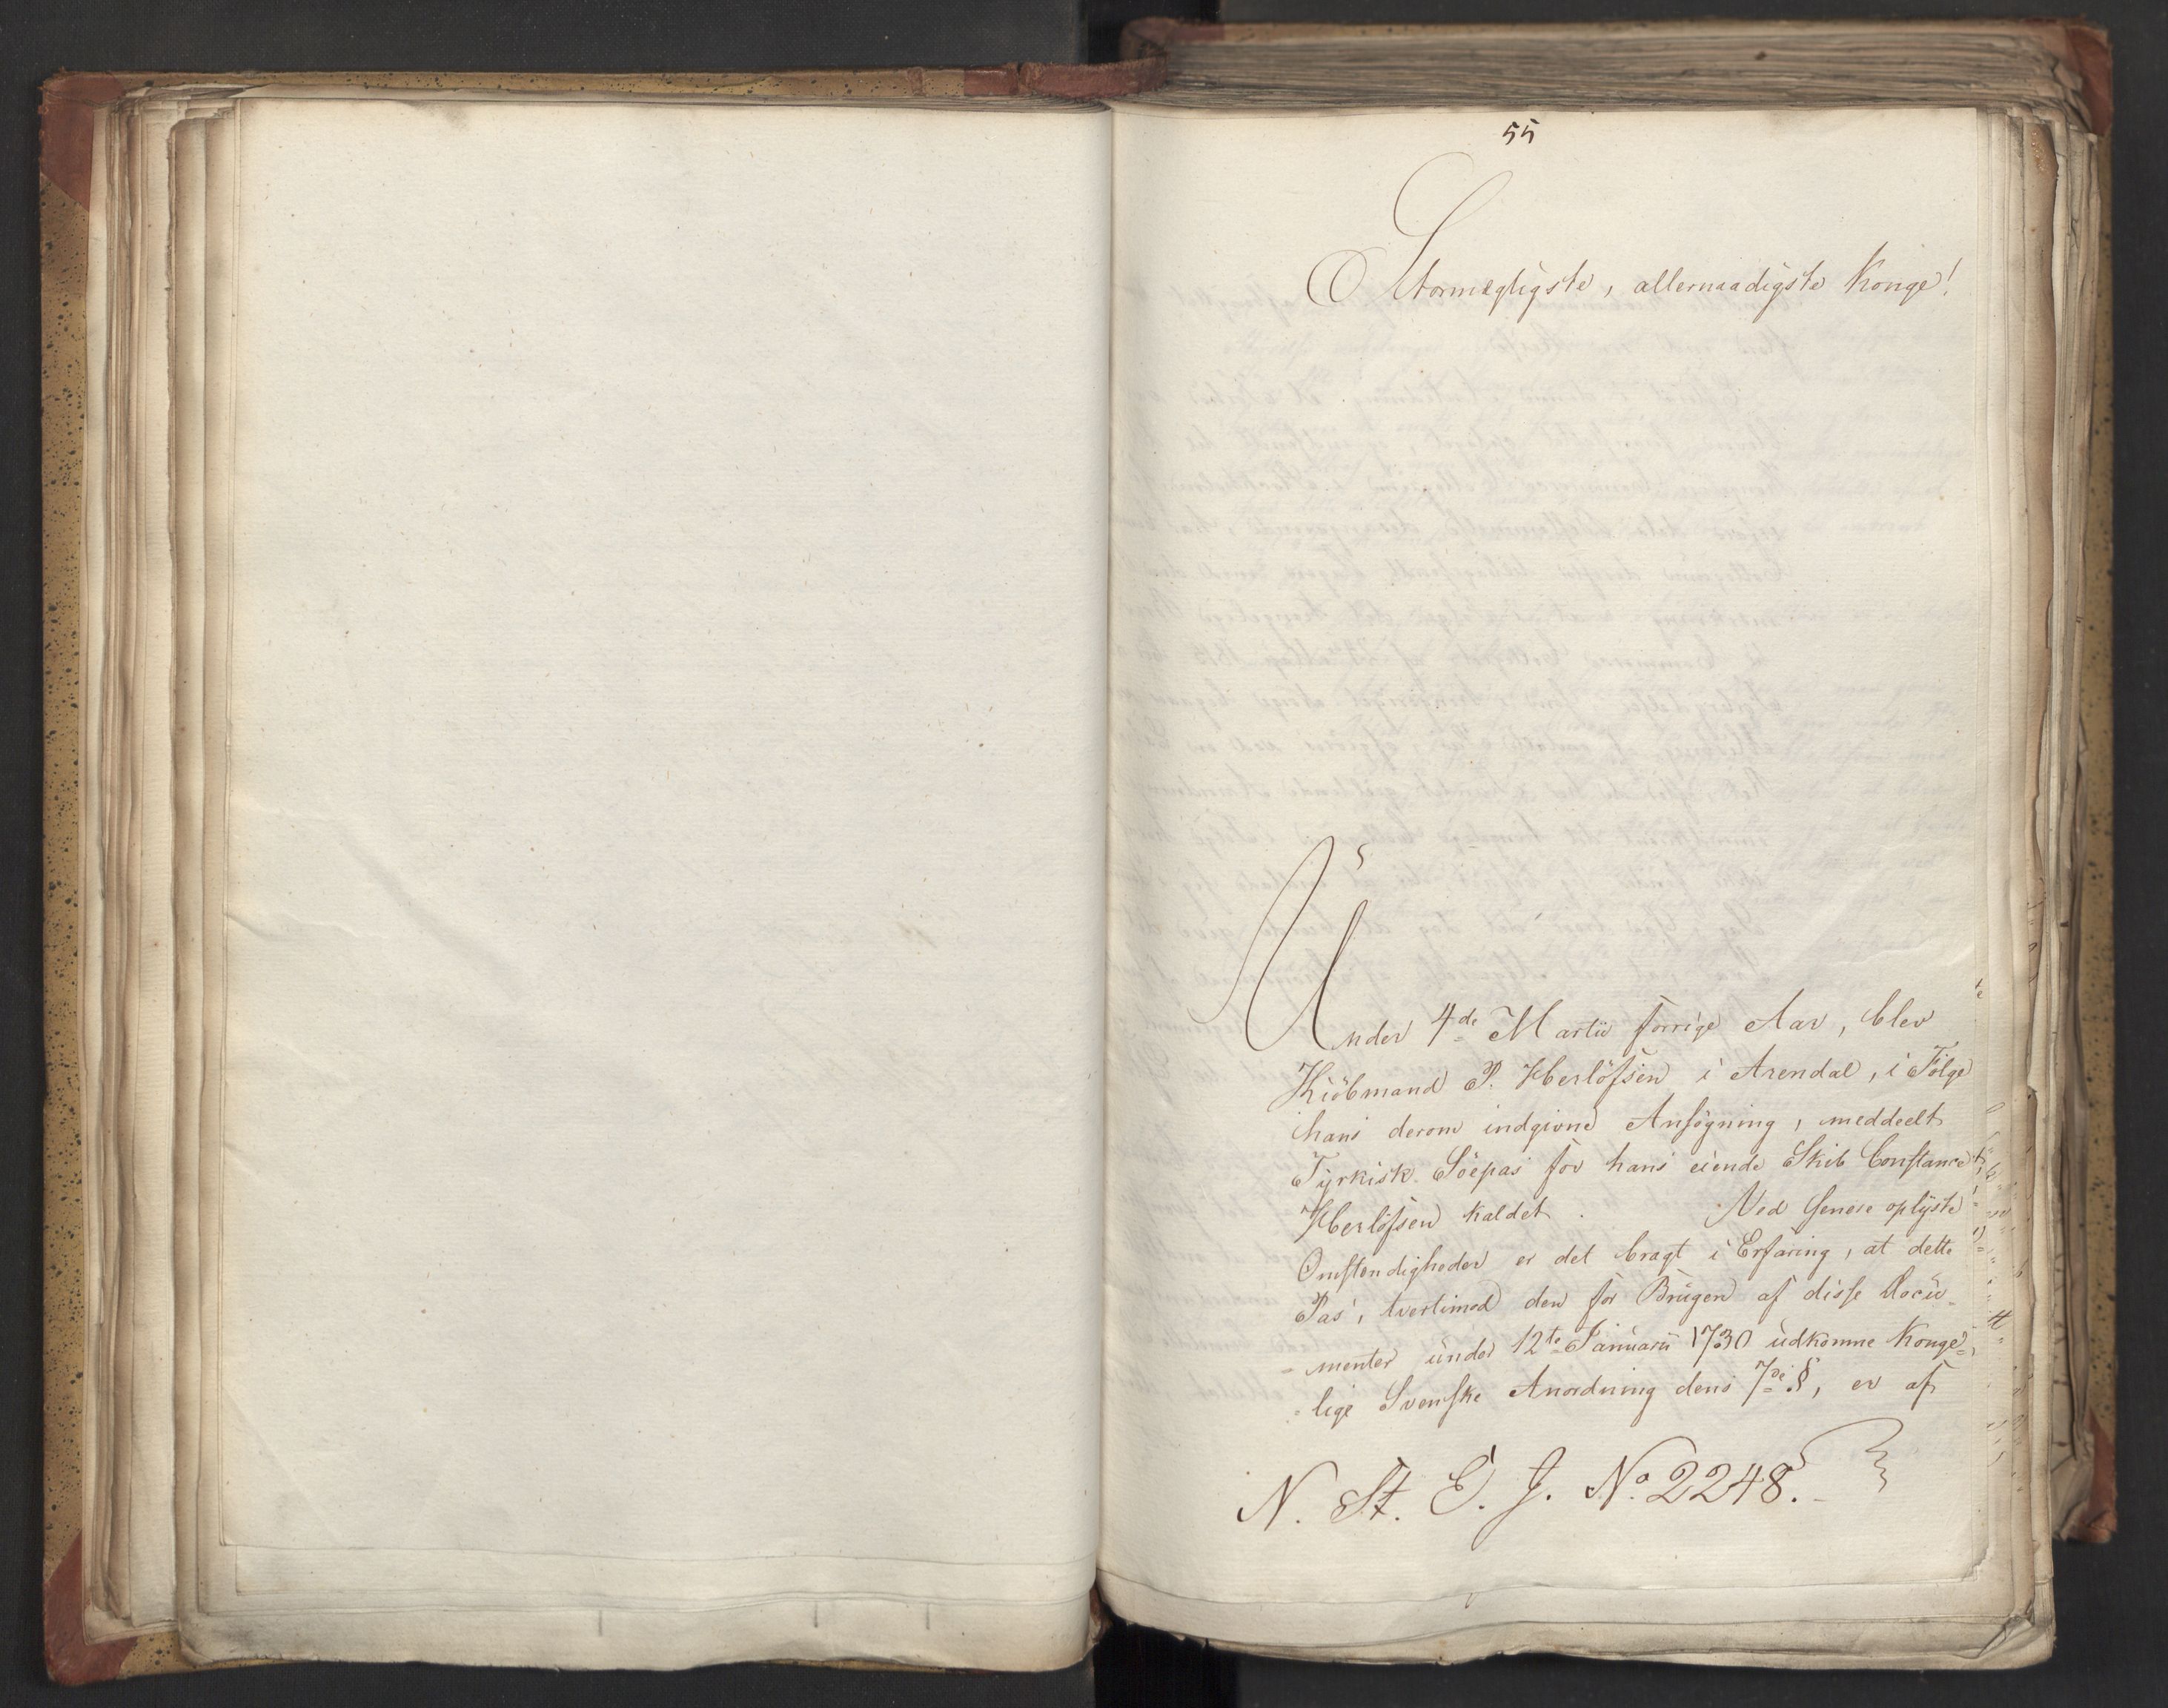 55
Stormægtigste, allernaadigste Konge!
Under 4de Martii forrige Aar, blev
Kiöbmand P. Herlöfsen i Arendal, i Fölge
hans derom indgivne Ansögning, meddeelt
Tyrkisk Söepas for hans eiende Skib Constance
Herlöfsen kaldet. Ved senere oplyste
Omstendigheder er det bragt i Erfaring, at dette
Pas, tvertimod den for Brugen af disse Docu-
-menter under 12te Januarii 1730 udkomne Konge-
-lige Svenske Anordning dens 7de §, er af
N. St. E. J. No 2248.